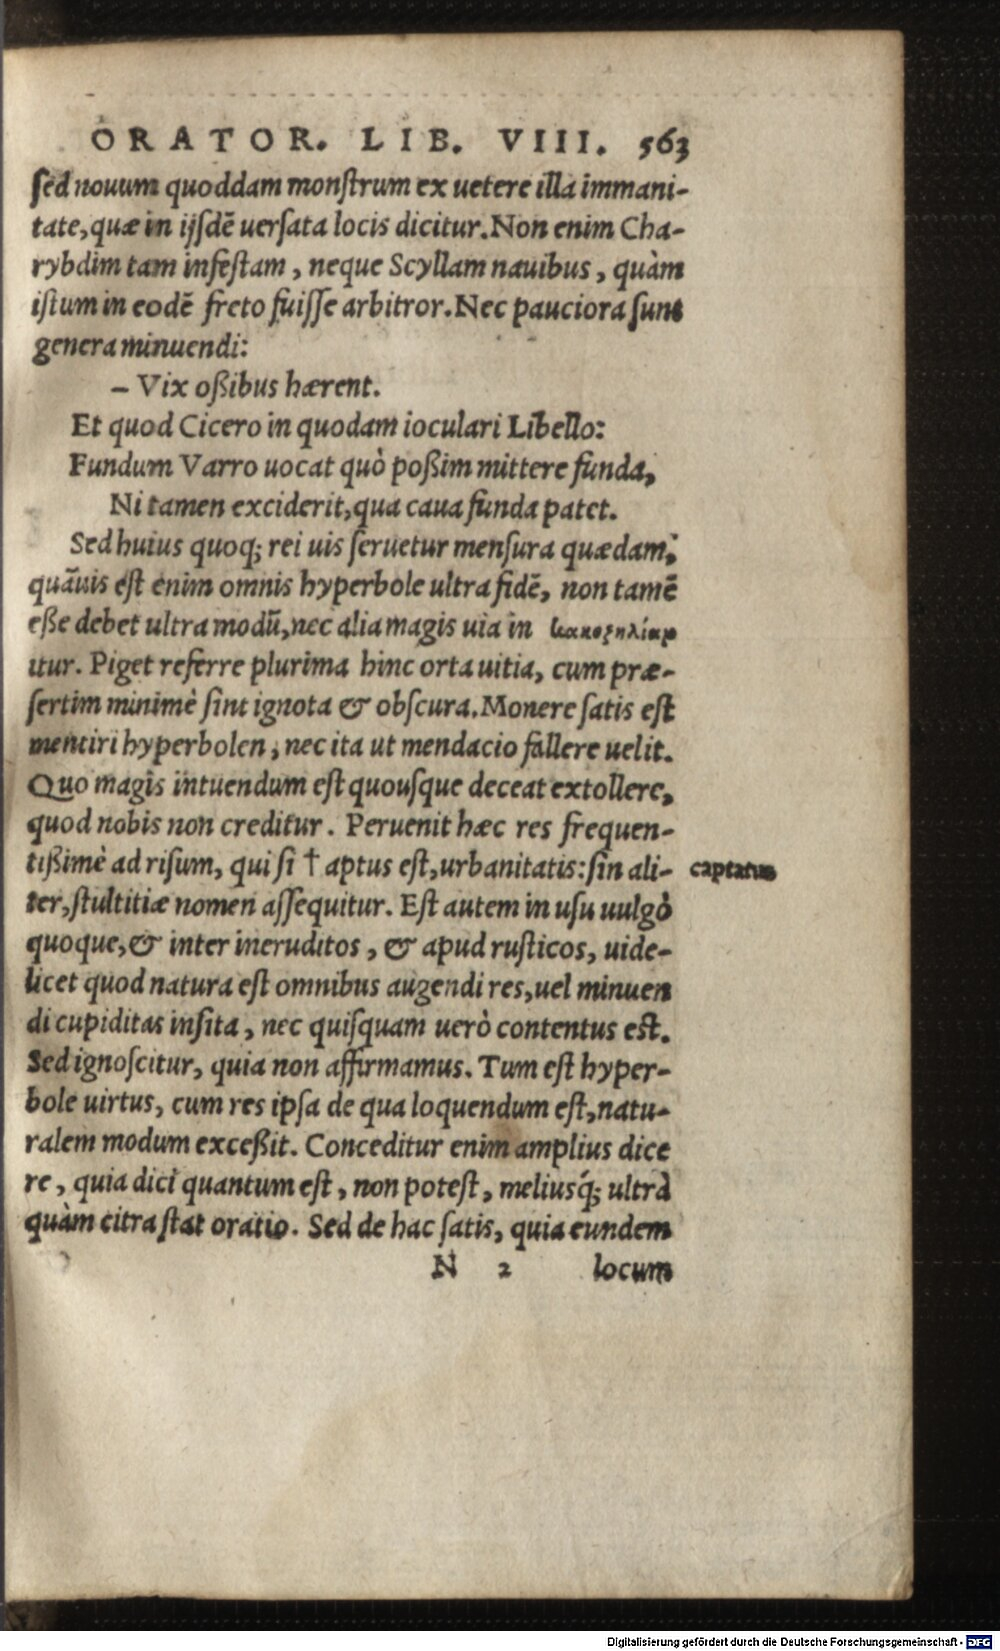 ORATOR. LIB. VIII. 563
sed nouum quoddam monstrum ex uetere illa immani-
tate, quæ in ijsdē uersata locis dicitur. Non enim Cha-
rybdim tam infestam, neque Scyllam nauibus, quàm
istum in eodē freto fuisse arbitror. Nec pauciora sunt
genera minuendi:
– Vix oßibus hærent.
Et quod Cicero in quodam ioculari Libello:
Fundum Varro uocat quò poßim mittere funda,
Ni tamen exciderit, qua caua funda patet.
Sed huius quoq; rei uis seruetur mensura quædam;
quāuis est enim omnis hyperbole ultra fidē, non tamē
eße debet ultra modū, nec alia magis uia in κακοζηλίαμ
itur. Piget referre plurima hinc orta uitia, cum præ-
sertim minimè sint ignota & obscura. Monere satis est
mentiri hyperbolen, nec ita ut mendacio fallere uelit.
Quo magis intuendum est quousque deceat extollere,
quod nobis non creditur. Peruenit hæc res frequen-
tißimè ad risum, qui si † aptus est, urbanitatis: sin ali-
captatus
ter, stultitiæ nomen assequitur. Est autem in usu uulgò
quoque, & inter ineruditos, & apud rusticos, uide-
licet quod natura est omnibus augendi res, uel minuen
di cupiditas insita, nec quisquam uerò contentus est.
Sed ignoscitur, quia non affirmamus. Tum est hyper-
bole uirtus, cum res ipsa de qua loquendum est, natu-
ralem modum exceßit. Conceditur enim amplius dice
re, quia dici quantum est, non potest, meliusq́; ultrà
quàm citra stat oratio. Sed de hac satis, quia eundem
N 2 locum
Digitalisierung gefördert durch die Deutsche Forschungsgemeinschaft - DFG